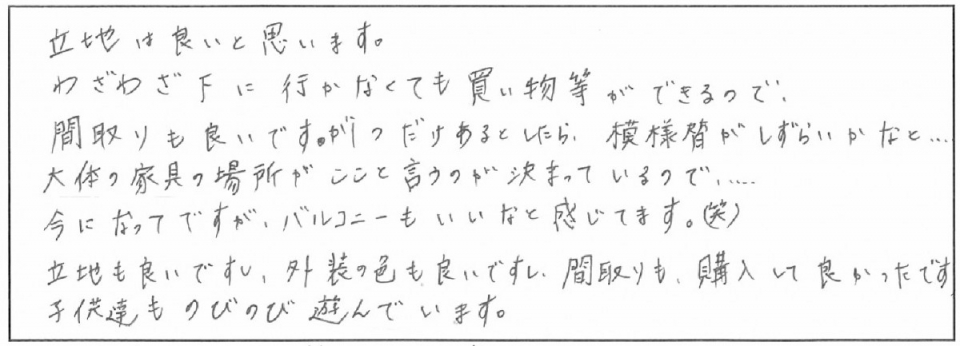 立地は良いと思います。
わざわざ下に行かなくても買い物等ができるので、
間取りも良いです。が1つだけあるとしたら、模様替がしずらいかなと…
大体の家具の場所がここと言うのが決まっているので、……
今になってですが、バルコニーもいいなと感じてます。(笑)
立地も良いですし、外装の色も良いですし、間取りも、購入して良かったです
子供達ものびのび遊んでいます。